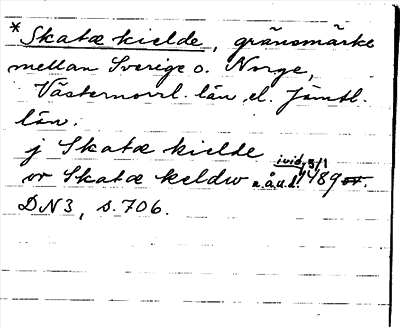 *Skatæ kielde, gränsmärke
mellan Sverige o. Norge,
Västernorrl. län el. Jämtl.
län.
j Skatæ kielde
or Skatæ keldw u.å.u.d. ivid. 5/1 1489
DN3, s. 706.